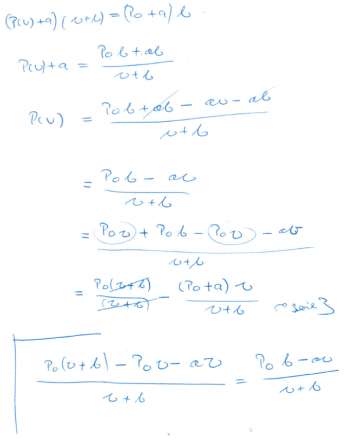 (P(v)+a)(v+b) = (P₀+a)b
P(v)+a = P₀b+ab / v+b
P(v) = P₀b+ab-av-ab / v+b
= P₀b - av / v+b
= P₀v + P₀b - P₀v - av / v+b
= P₀(v+b) / (v+b) - (P₀+a)v / v+b
P₀(v+b) - P₀v - av / v+b = P₀b - av / v+b